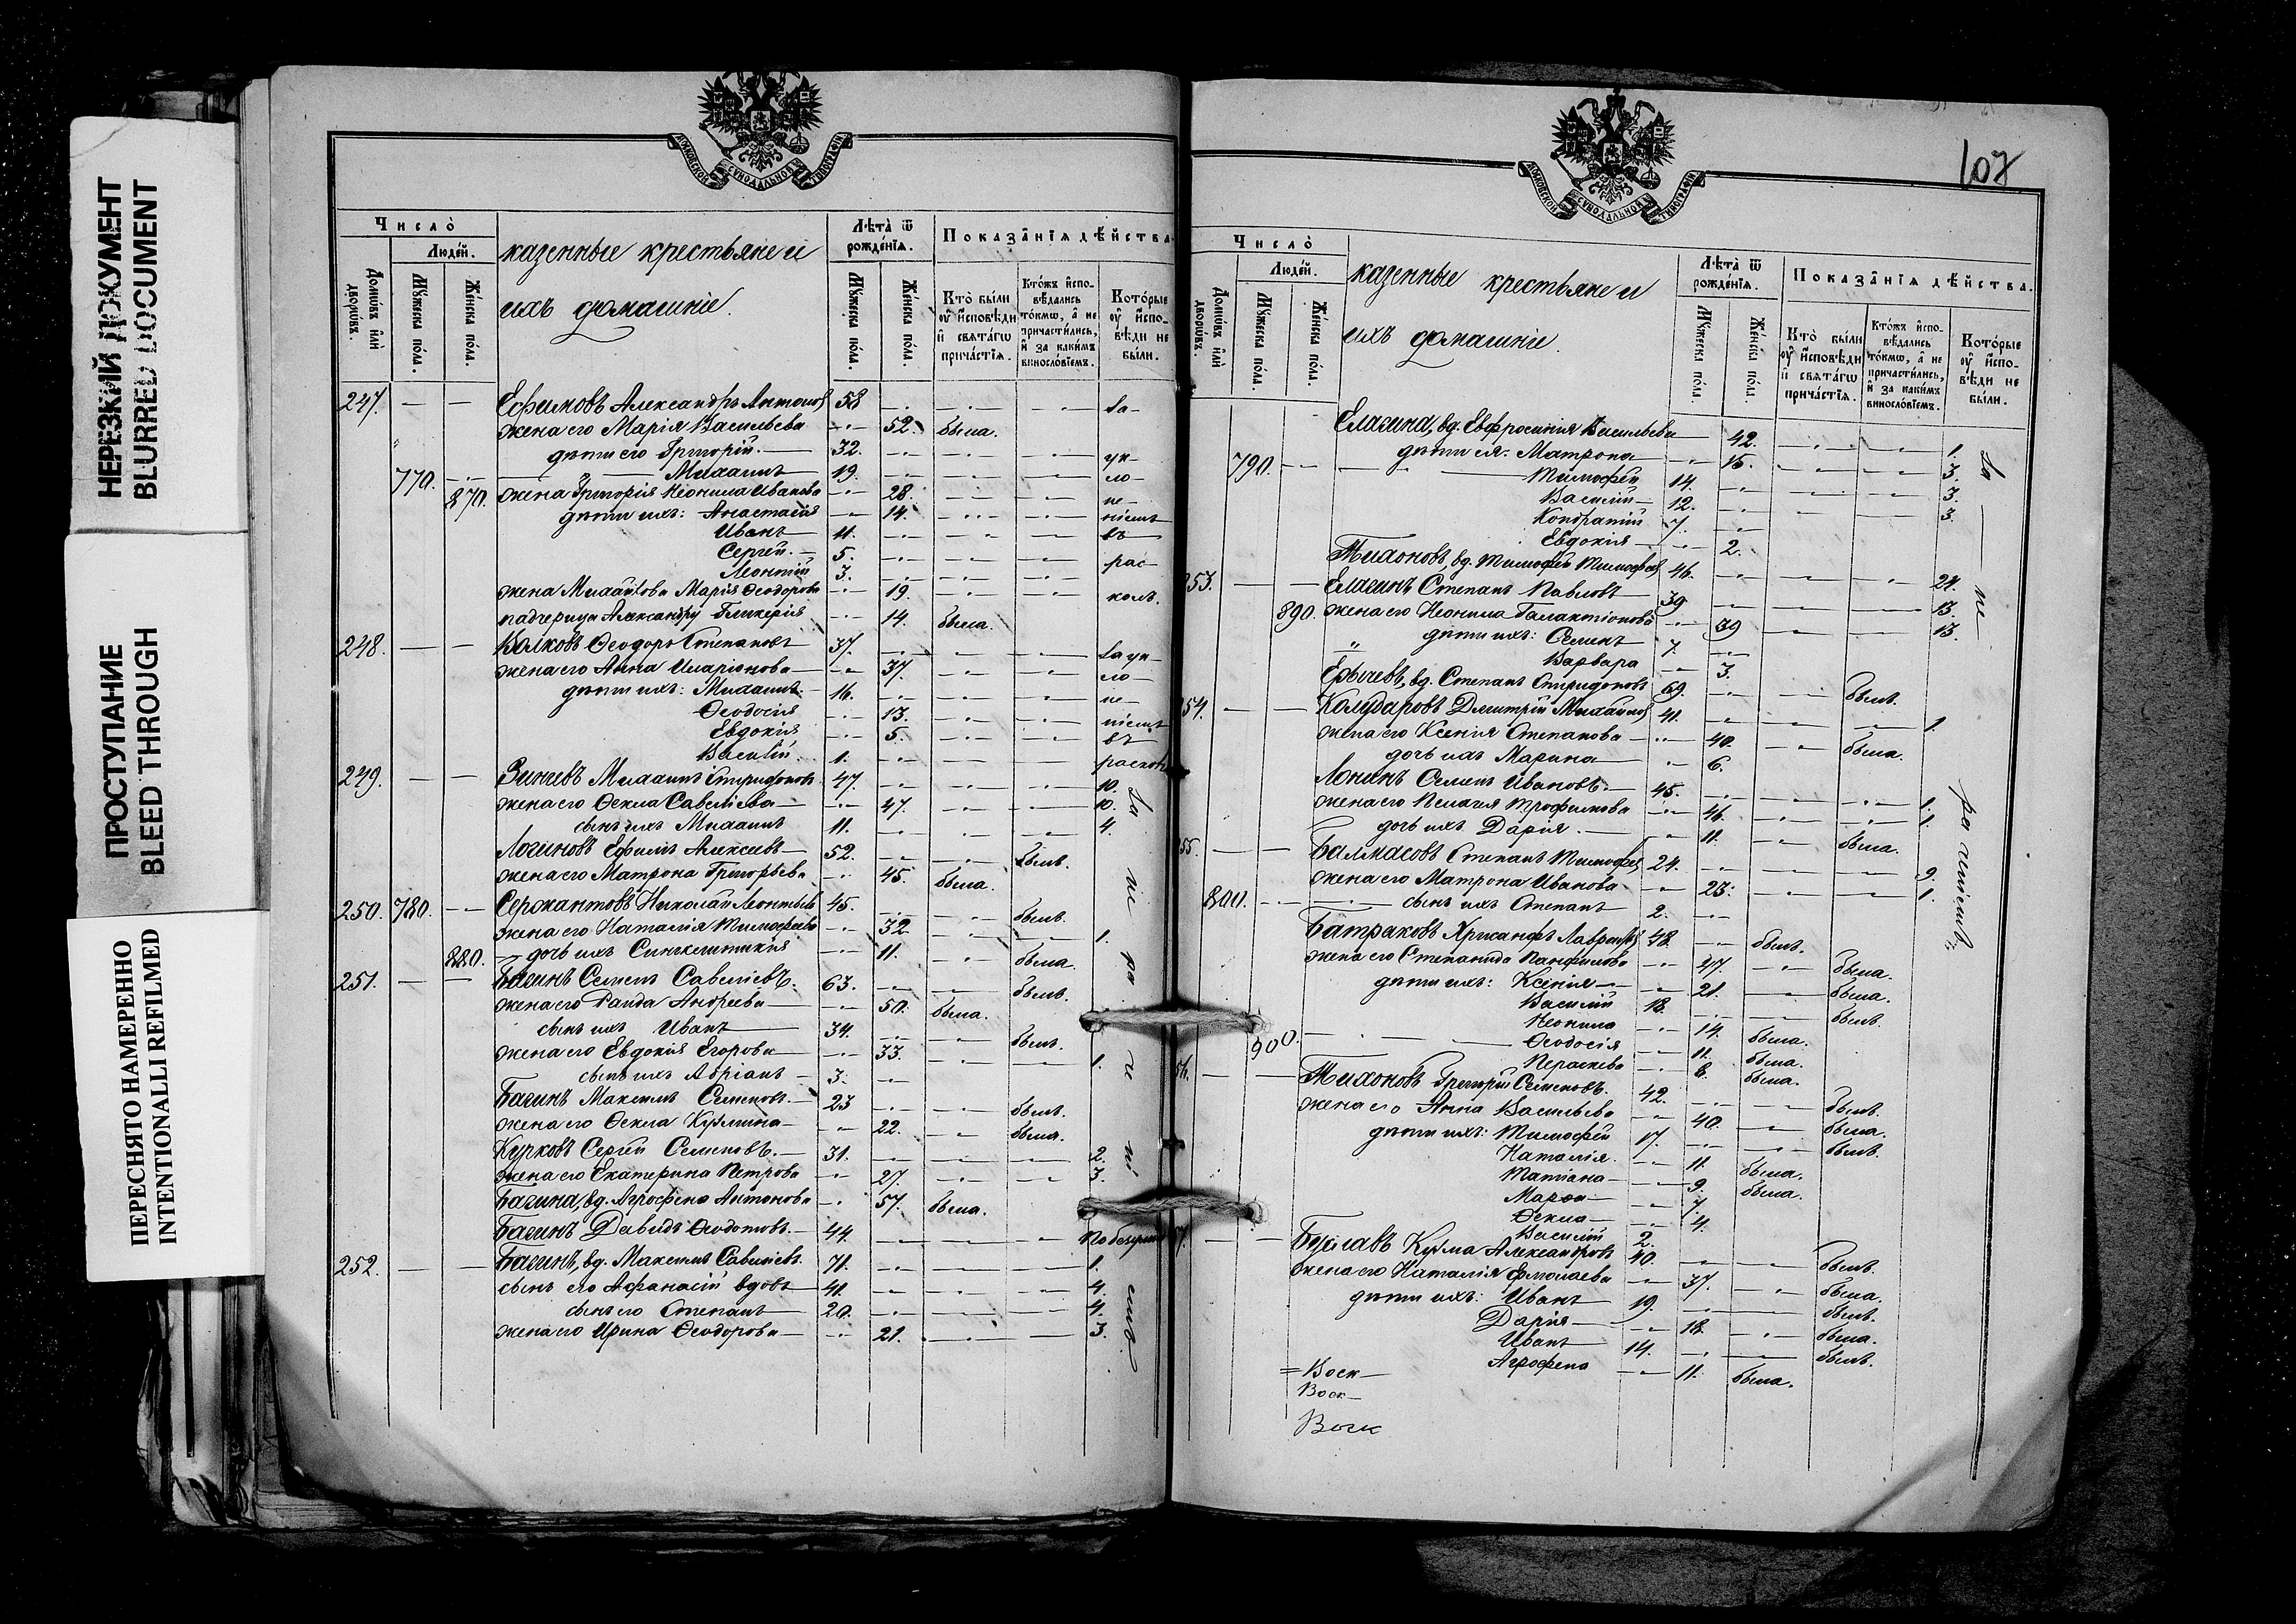 НЕРЕЗКИЙ ДОКУМЕНТ
BLURRED DOCUMENT
ПРОСТУПАНИЕ
BLEED THROUGH
ПЕРЕСНЯТО НАМЕРЕННО
INTENTIONALLI REFILMED
МОСКОВСКОЙ СѴНОДАЛЬНОЙ ТѴПОГРАФІИ
Число̀
Люде́й.
Домѡ́въ и҆лѝ дворѡ́въ.
Мꙋ́жеска по́ла.
Же́нска по́ла.
казенные крестьяне и
ихъ домашніе.
Лѣ́та ѿ рожде́нїѧ.
Мꙋ́жеска по́ла.
Же́нска по́ла.
Показа̑нїѧ дѣ́йства
Кто̀ бы́ли оу҆ и҆сповѣ́ди и҆ свѧта́гѡ прича́стїѧ.
Кто́жъ и҆сповѣ́дались то́кмѡ, а҆ не причасти́лись, и҆ за каки́мъ винослѡ́вїемъ.
Кото́рые оу҆ и҆сповѣ́ди не бы́ли.
247. — — Ефимовъ Александръ Антонов 58 — — — За-
жена его Марія Васильева — 52. была.
дѣти его Григорій. 32. — — — ук-
770. — Михаилъ 19. — — — ло-
870. жена Григорія Неонила Иванова — 28. — — не-
дѣти ихъ: Анастасія — 14. — — ніемъ
Иванъ 11. — — — въ
Сергей. 5. — — — рас-
Леонтій 3. — — —
жена Михайлова Марія Ѳеодорова — 19. — — колъ.
падчерица Александру Гликерія — 14. была.
248. — — Волковъ Ѳеодоръ Степановъ 37. — — — За ук-
жена его Анна Иларіонова — 37. — — ло-
дѣти ихъ: Михаилъ. 16. — — — не-
Ѳеодосія — 13. — — ніемъ
Евдокія — 5. — — въ
Василій 1. — — — раскол
249. — — Зиневъ Михаилъ Спиридоновъ 47. — — — 10.
жена его Ѳекла Савельева — 47. — — 10.
сынъ ихъ Михаилъ 11. — — — 4.
Логиновъ Ефимъ Алексѣевъ 52. — — былъ.
жена его Матрона Григорьева — 45. была.
250. 780. — Сержантовъ Николай Леонтьев 45. — — былъ.
жена его Наталія Тимофеева — 32. — — 1.
880. дочь ихъ Синклитикія — 11. — была.
251. — — Багинъ Семенъ Савельевъ. 63. — — былъ.
жена его Раида Андреева — 50. была.
сынъ ихъ Иванъ 34. — — былъ.
жена его Евдокія Егорова — 33. — — 1.
сынъ ихъ Адріанъ 3. —
Багинъ Максимъ Семеновъ. 23 — — былъ.
жена его Ѳекла Кузмина — 22. — была.
Курковъ Сергей Семеновъ. 31. — — — 2.
жена его Екатерина Петрова — 27. — — 3.
Багина, вд. Агрофена Антонова — 57. была.
Багинъ Давидъ Ѳеодотовъ. 44. — — —
252. — — Багинъ, вд. Максимъ Савельевъ. 71. — — — 1.
сынъ его Аѳанасій вдовъ 41. — — — 4.
сынъ его Степанъ 20. — — — 4.
жена его Ирина Ѳеодорова — 21. — — 3.
107
МОСКОВСКОЙ СѴНОДАЛЬНОЙ ТѴПОГРАФІИ
Число̀
Люде́й.
Домѡ́въ и҆лѝ дворѡ́въ.
Мꙋ́жеска по́ла.
Же́нска по́ла.
казенные крестьяне и
ихъ домашніе.
Лѣ́та ѿ рожде́нїѧ.
Мꙋ́жеска по́ла
Же́нска по́ла.
Показа̑нїѧ дѣ́йства.
Кто̀ бы́ли оу҆ и҆сповѣ́ди и҆ свѧта́гѡ прича́стїѧ.
Кто́жъ и҆сповѣ́дались то́кмѡ, а҆ не причасти́лись, и҆ за каки́мъ винослѡ́вїемъ.
Кото́рые оу҆ и҆сповѣ́ди не бы́ли.
Елагина, вд. Евфросинія Васильева — 42. — — 1.
дѣти ея: Матрона — 15. — — 3.
790. — — Тимофей 14. — — — 3.
Василій 12. — — — 3.
Кондратій 7. —
Евдокія — 2.
Тихоновъ, вд. Тимофей Тимофеев 46. — — — 24.
253. — — Елагинъ Степанъ Павловъ 39 — — — 13.
890. жена его Неонила Галактіонова — 39 — — 13.
дѣти ихъ: Семенъ 7. —
Варвара — 3.
Ерычевъ, вд. Степанъ Спиридоновъ 69. — — былъ.
254. — — Колударовъ Дмитрій Михайлов 41. — — — 1.
жена его Ксенія Степанова — 40. — была.
дочь ихъ Марина — 6.
Лонинъ Семенъ Ивановъ. 45. — — — 1.
жена его Пелагія Трофимова — 46. — — 1.
дочь ихъ Дарія. — 11. — была.
255. — — Балмасовъ Степанъ Тимофеев 24. — — — 9.
жена его Матрона Иванова — 23. — — 1.
800. — сынъ ихъ Степанъ 2. —
Батраковъ Хрисанфъ Лаврентьев 48. — былъ.
жена его Степанида Панфилова — 47. — была.
дѣти ихъ: Ксенія — 21. — была.
Василій 18. — — былъ.
Неонила — 14. была.
900. — — Ѳеодосія — 11. была.
Параскева — 8. была.
56. — — Тихоновъ Григорій Семеновъ. 42. — — былъ.
жена его Анна Васильева — 40. — была.
дѣти ихъ: Тимофей 17. — — былъ.
Наталія. — 11. была.
Татіана — 9. была.
Марѳа — 7.
Ѳекла — 4.
Василій 2.
57. — — Кузма Александровъ 40. — — былъ.
жена его Наталія Ермолаева — 37. — была.
дѣти ихъ: Иванъ 19. — — былъ.
Дарія — 18. — была.
Иванъ 14. — — былъ.
Агрофена — 11. была.
= Воск —
Воск —
Воск